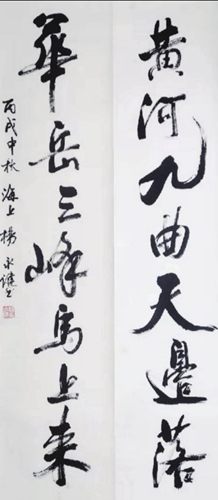 黄河九曲天邊落
華岳三峰馬上来
丙戌中秋海上楊永健书